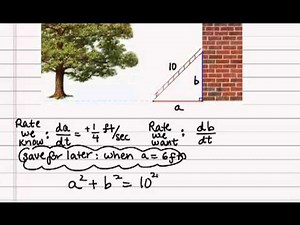 10
b
a
Rate we know: da/dt = +1/4 ft/sec Rate we want: db/dt
save for later: when a = 6 ft
a² + b² = 10²